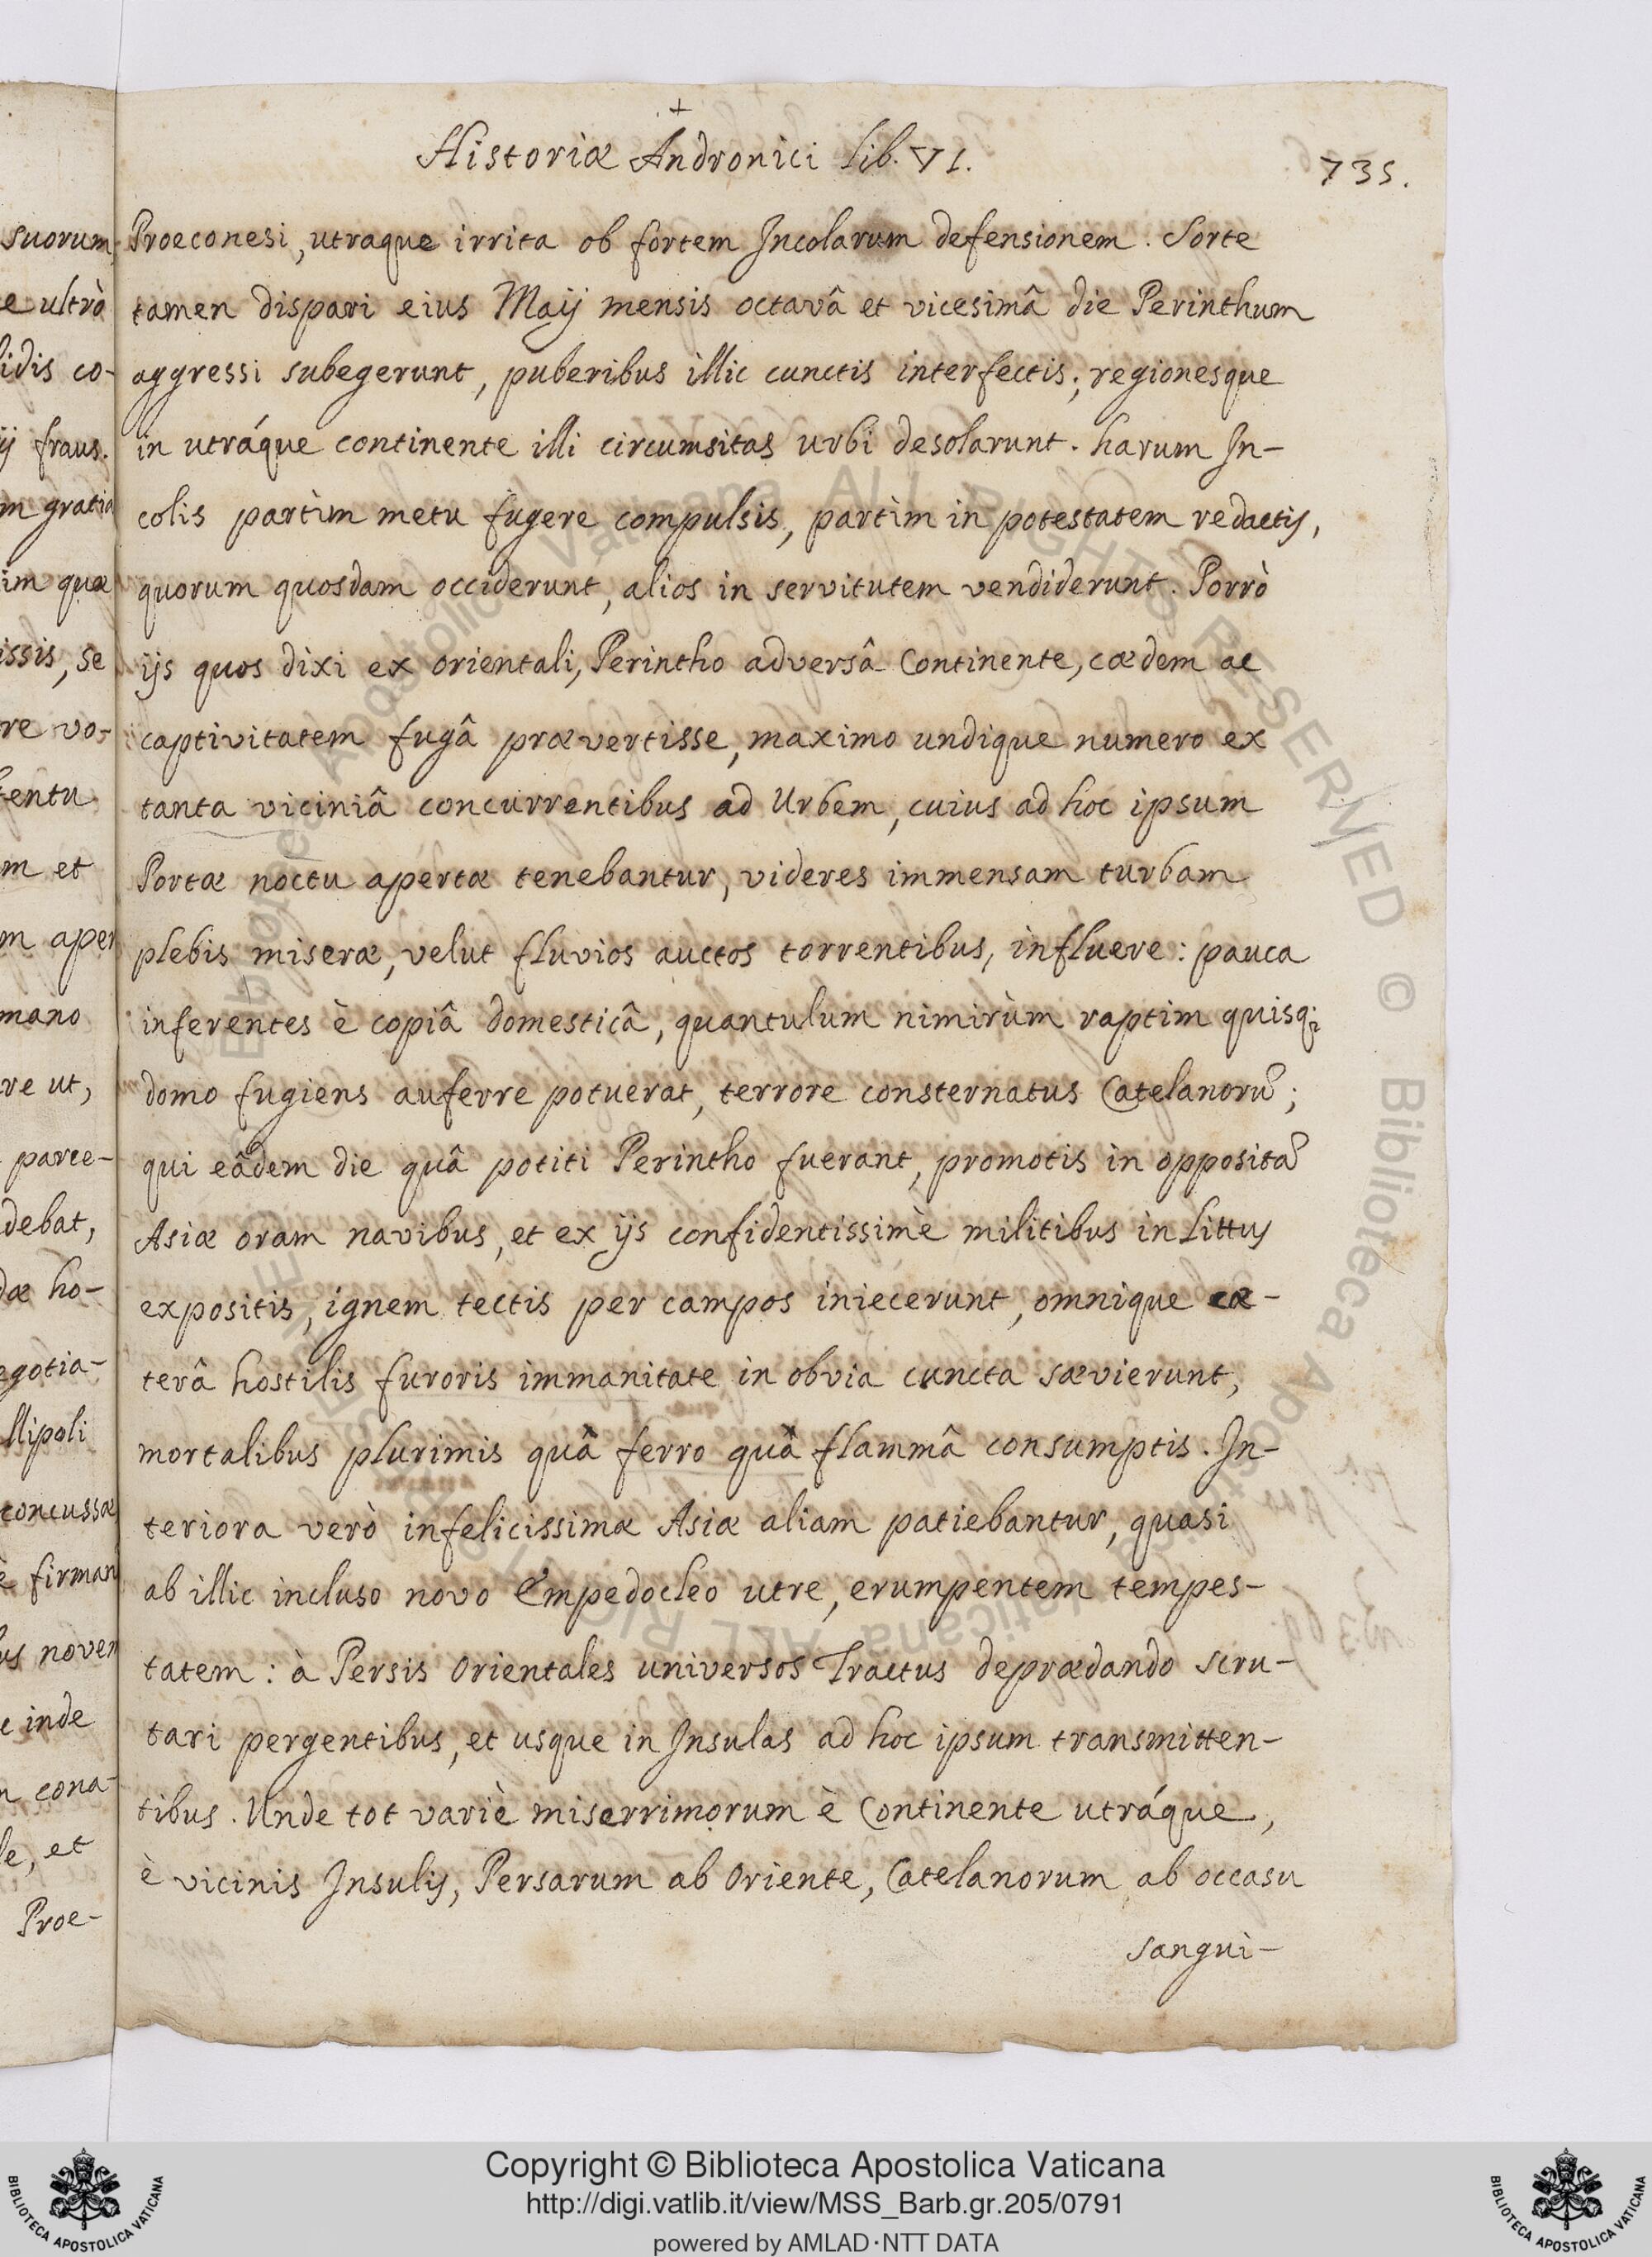 Historiæ Andronici Lib. VI.
735.
Proeconesi, utraque irrita ob fortem Incolarum defensionem. Sorte
tamen dispari eius Maij mensis octavâ et vicesimâ die Perinthum
aggressi subegerunt, puberibus illic cunctis interfectis; regionesque
in utráque continente illi circumsitas urbi desolarunt. harum In-
colis partìm metu fugere compulsis, partìm in potestatem redactis,
quorum quosdam occiderunt, alios in servitutem vendiderunt. Porrò
ijs quos dixi ex orientali, Perintho adversâ Continente, cædem ac
captivitatem fugâ prævertisse, maximo undique numero ex
tanta viciniâ concurrentibus ad Urbem, cuius ad hoc ipsum
Portæ noctu apertæ tenebantur, videres immensam turbam
plebis miseræ, velut fluvios auctos torrentibus, influere: pauca
inferentes è copiâ domesticâ, quantulum nimirùm raptim quisq;
domo fugiens auferre potuerat, terrore consternatus Catelanorũ;
qui eâdem die quâ potiti Perintho fuerant, promotis in oppositã
Asiæ oram navibus, et ex ijs confidentissimè militibus in Littus
expositis, ignem tectis per campos iniecerunt, omnique cæ-
terâ hostilis furoris immanitate in obvia cuncta sævierunt,
mortalibus plurimis quâ ferro quâ flammâ consumptis. In-
teriora verò infelicissimæ Asiæ aliam patiebantur, quasi
ab illic incluso novo Empedocleo utre, erumpentem tempes-
tatem: à Persis Orientales universos Tractus deprædando scru-
tari pergentibus, et usque in Insulas ad hoc ipsum transmitten-
tibus. Unde tot variè miserrimorum è Continente utráque,
è vicinis Insulis, Persarum ab Oriente, Catelanorum ab occasu
sangui-
suorum
e ultrò
lidis co-
ij fraus.
m gratia
im quæ
issis, se
re vo-
tentu
m et
m aper
mano
re ut,
parce-
debat,
dæ ho-
egotia-
llipoli
concussæ
è firman
us noven
c inde
n cona-
le, et
Proe-
Biblioteca Apostolica Vaticana ALL RIGHTS RESERVED © Biblioteca Apostolica Vaticana ALL RIGHTS RESERVED ©
Copyright © Biblioteca Apostolica Vaticana
http://digi.vatlib.it/view/MSS_Barb.gr.205/0791
powered by AMLAD·NTT DATA
BIBLIOTECA APOSTOLICA VATICANA
BIBLIOTECA APOSTOLICA VATICANA